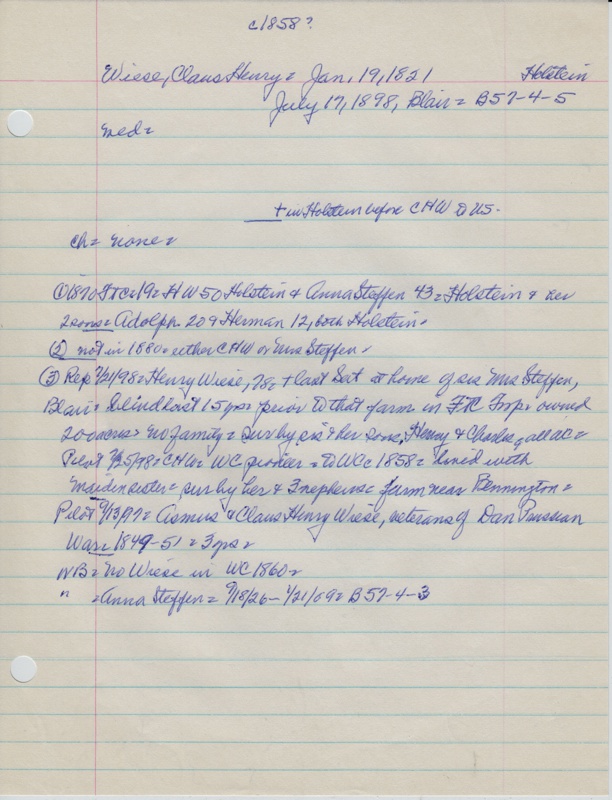 c1858?
Wiese, Claus Henry = Jan. 19, 1821 Holstein
July 17, 1898, Blair = B57-4-5
med =
+ in Holstein before CHW to US.
ch = none =
① 1870 FtC = 19 = HW 50 Holstein & Anna Steffen 43 = Holstein & her
2 sons = Adolph 20 & Herman 12, both Holstein.
② not in 1880 = either CHW or Mrs Steffen =
③ Rep 7/21/98 = Henry Wiese, 78 = + last Sat at home of sis Mrs Steffen,
Blair = blind last 15 yrs prior to that farm in FtC Twp = owned
200 acres = no family = sur by sis & her sons, Henry & Charles, all WC =
Pilot 7/25/98 = CHW = WC pioneer = to WC c 1858 = lived with
maiden sister = sur by her & 3 nephews = farm near Bennington =
Pilot 9/13/97 = Asmus & Claus Henry Wiese, veterans of Dan Prussian
War = 1849-51 = 3 yrs =
NB = No Wiese in WC 1860 =
" = Anna Steffen = 9/18/26 - 1/21/09 = B57-4-3